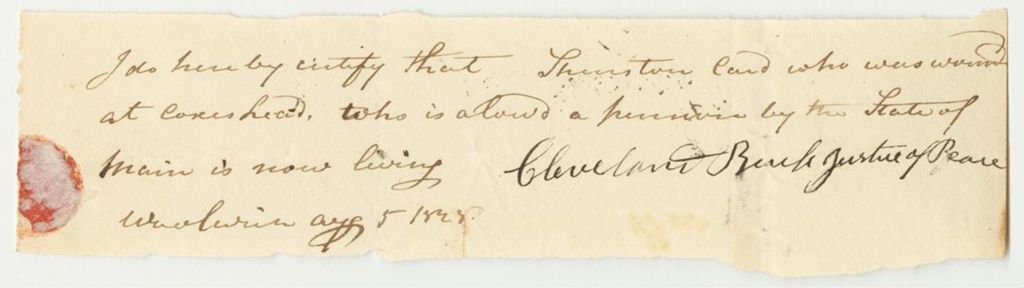 I do hereby certify that Thurston Card who was wound
at coxeshead. who is alowd a pension by the State of
main is now living Cleveland Buck Justice of Peace
Woolwich agg 5 1828